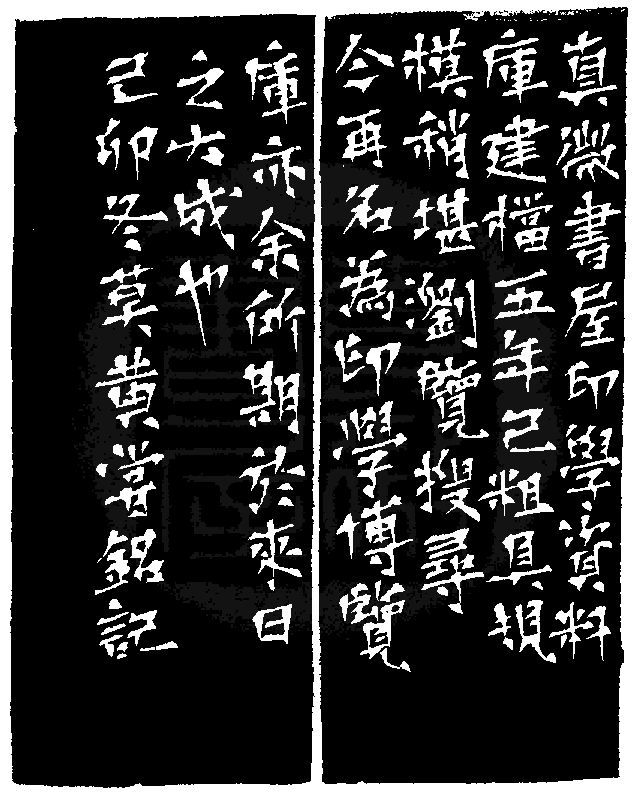 真微書屋印學資料
庫建檔五年已粗具規
模稍堪瀏覽搜尋
今再名為印學博覽
庫亦余所期於來日
之大成也
己卯冬莫黄嘗銘記